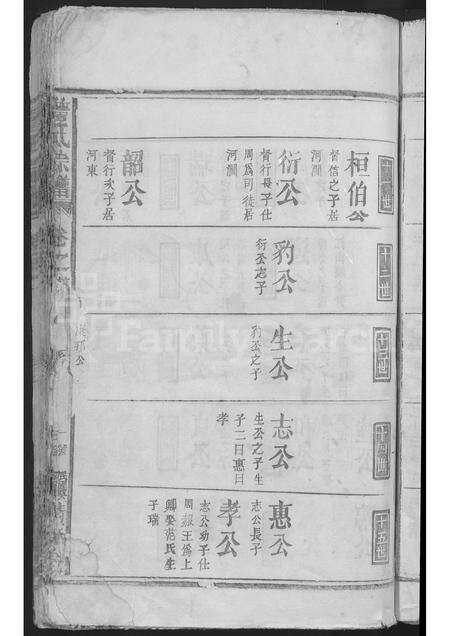 世
桓伯公
督信之子居
河澗
衍公
督行長子仕
周爲司徒居
河澗
韶公
督行次子居
河東
十二世
豹公
衍公之子
十三世
生公
豹公之子
十四世
志公
生公之子生
子二曰惠曰
孝
十五世
惠公
志公長子
孝公
志公幼子仕
周赧王爲上
卿娶范氏生
子瑞
氏宗譜
卷之
FamilySearch